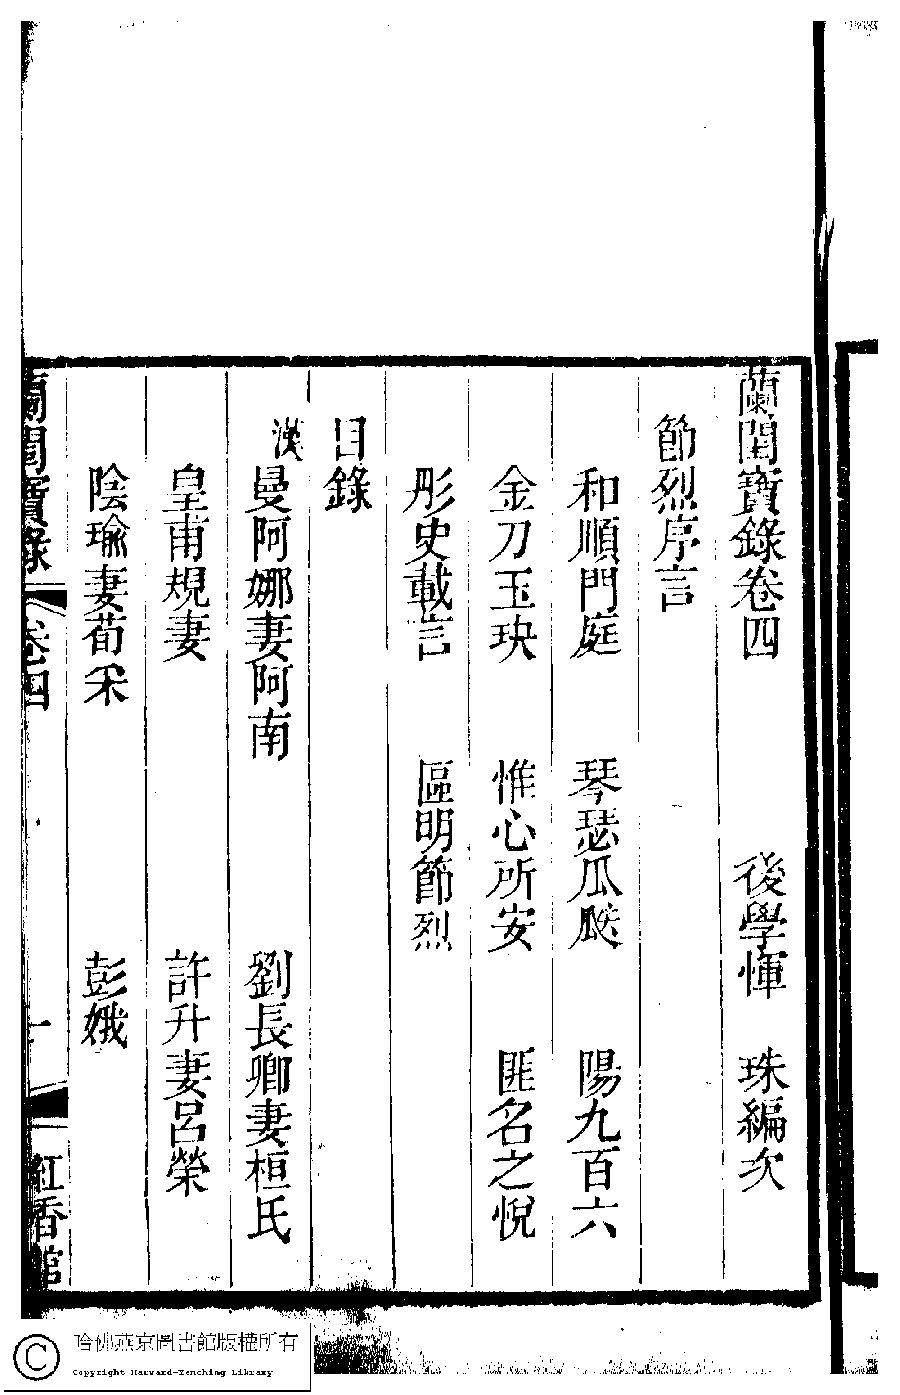 蘭閨寶錄卷四　後學惲　珠編次
節烈序言
和順門庭　琴瑟瓜瓞　陽九百六
金刀玉玦　惟心所安　匪名之悅
彤史載言　區明節烈
目錄
漢　曼阿娜妻阿南　劉長卿妻桓氏
皇甫規妻　許升妻呂榮
陰瑜妻荀采　彭娥
蘭閨寶錄　卷四　一　紅香館
哈佛燕京圖書館版權所有
Copyright Harvard-Yenching Library